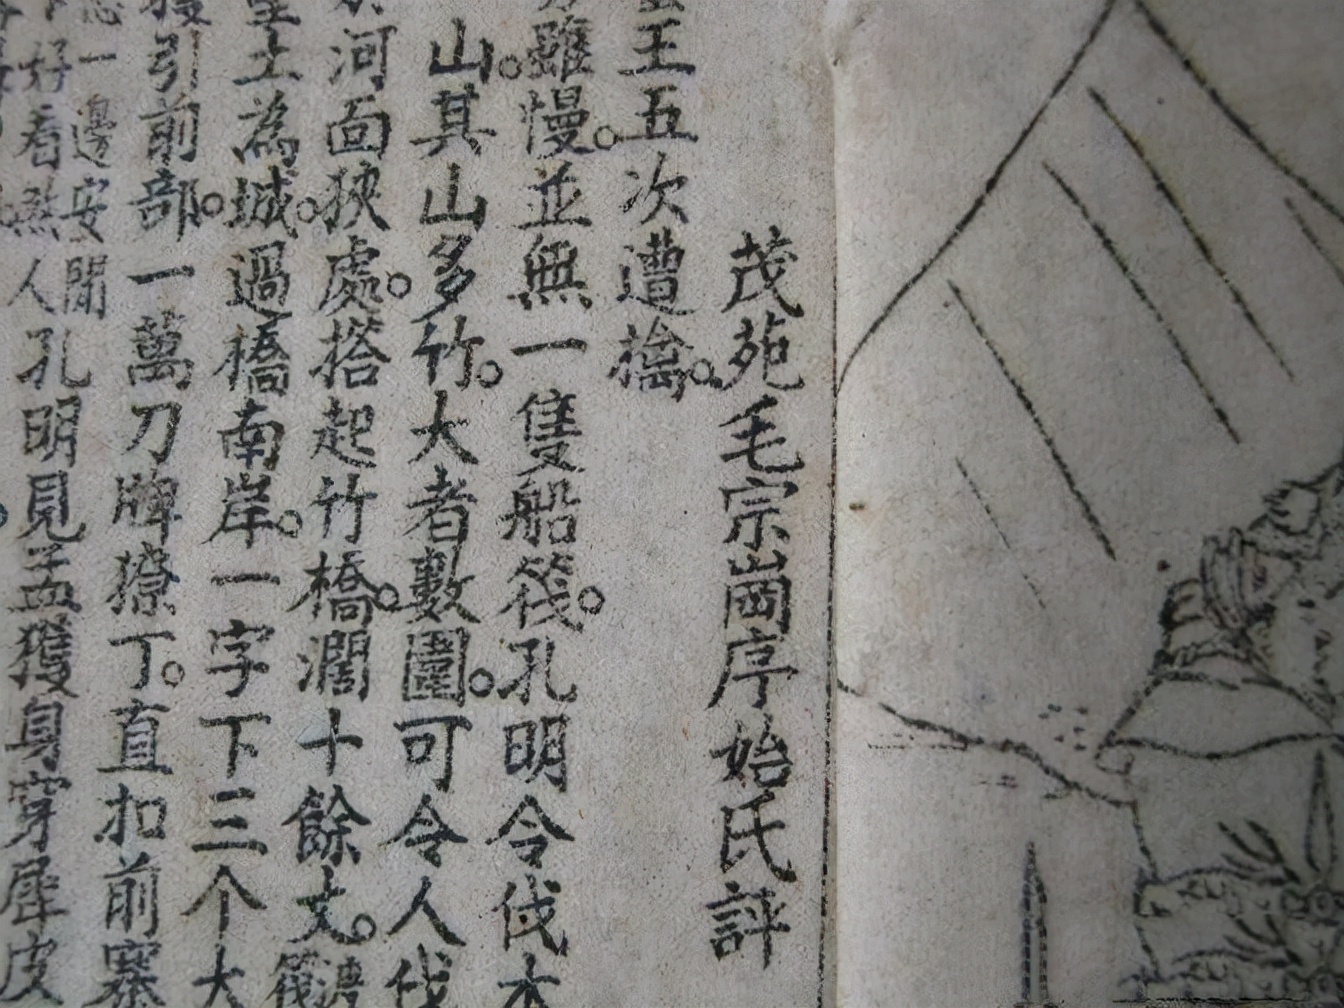 茂苑毛宗崗序始氏評
王五次遭擒。
雖慢。並無一隻船筏。孔明令伐木
山。其山多竹。大者數圍。可令人伐
河面狹處。搭起竹橋。濶十餘丈。
土為城。過橋南岸。一字下三个大
引前部。一萬刀牌獠丁。直扣前寨
一邊安閒
好看煞人孔明見孟獲身穿犀皮